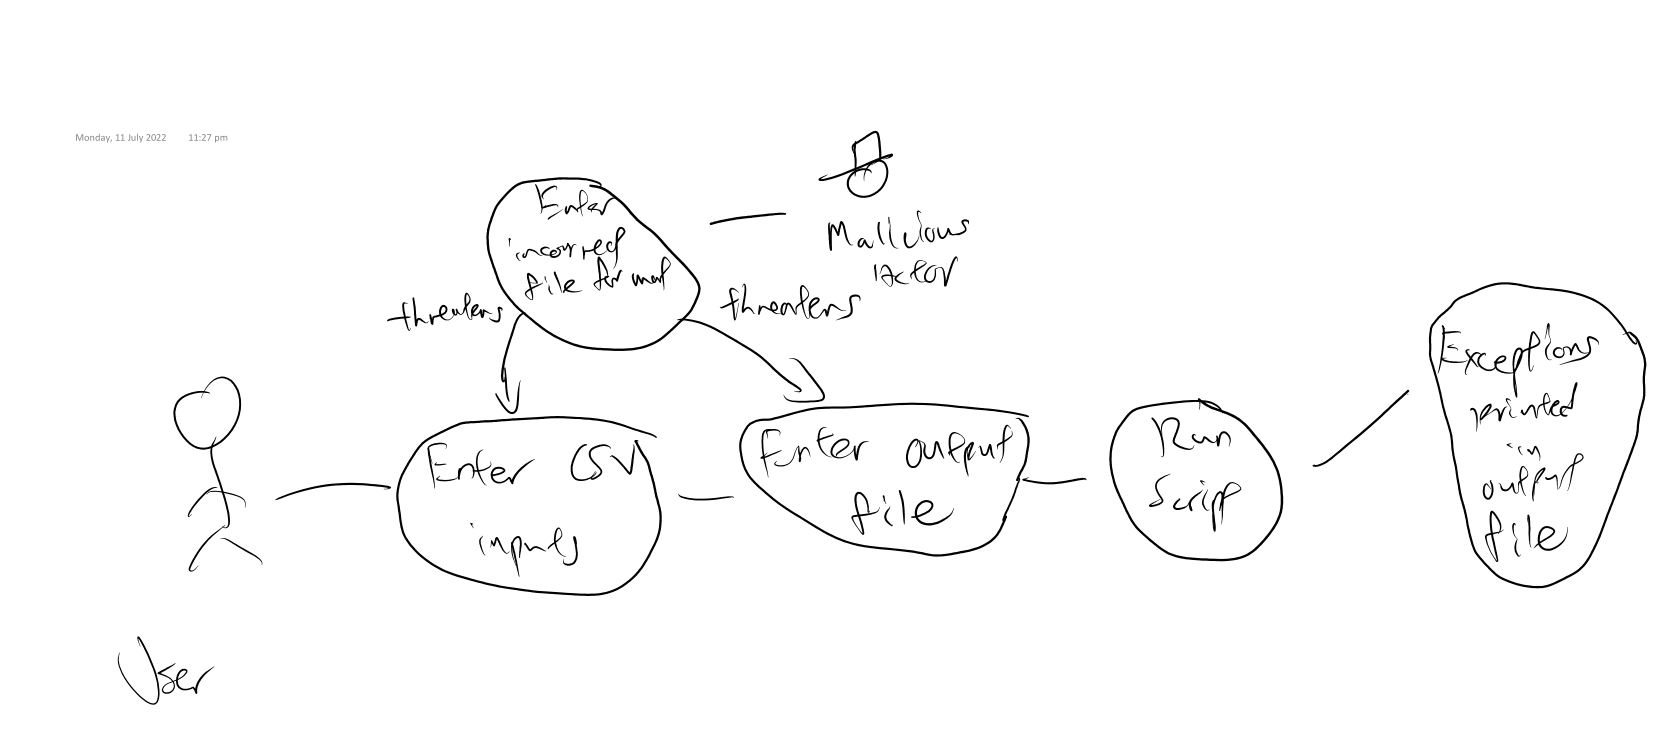 Monday, 11 July 2022 11:27 pm
Enter
incorrect
file format
Mallicious
Actor
threatens
threatens
Enter CSV
inputs
Enter output
file
Run
Script
Exceptions
printed
in
output
file
User